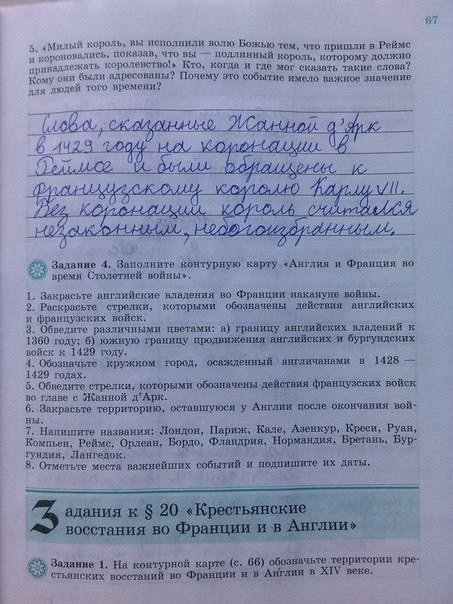 67
5. «Милый король, вы исполнили волю Божью тем, что пришли в Реймс
и короновались, показав, что вы — подлинный король, которому должно
принадлежать королевство!» Кто, когда и где мог сказать такие слова?
Кому они были адресованы? Почему это событие имело важное значение
для людей того времени?
Слова, сказанные Жанной д'Арк
в 1429 году на коронации в
Реймсе и были обращены к
французскому королю Карлу VII.
Без коронации король считался
незаконным, небогоизбранным.
Задание 4. Заполните контурную карту «Англия и Франция во
время Столетней войны».
1. Закрасьте английские владения во Франции накануне войны.
2. Раскрасьте стрелки, которыми обозначены действия английских
и французских войск.
3. Обведите различными цветами: а) границу английских владений к
1360 году; б) южную границу продвижения английских и бургундских
войск к 1429 году.
4. Обозначьте кружком город, осажденный англичанами в 1428 —
1429 годах.
5. Обведите стрелки, которыми обозначены действия французских войск
во главе с Жанной д'Арк.
6. Закрасьте территорию, оставшуюся у Англии после окончания вой-
ны.
7. Напишите названия: Лондон, Париж, Кале, Азенкур, Креси, Руан,
Компьен, Реймс, Орлеан, Бордо, Фландрия, Нормандия, Бретань, Бур-
гундия, Лангедок.
8. Отметьте места важнейших событий и подпишите их даты.
Задания к § 20 «Крестьянские
восстания во Франции и в Англии»
Задание 1. На контурной карте (с. 66) обозначьте территории кре-
стьянских восстаний во Франции и в Англии в XIV веке.